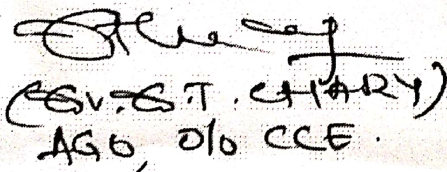 (G.V.G.T. CHARY)
AGO, O/o CCE.